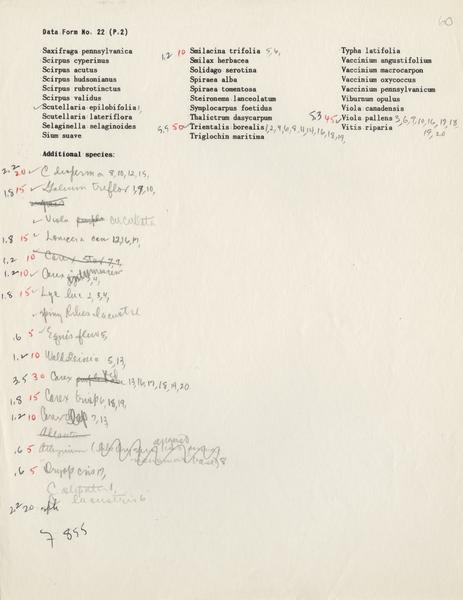 60
Data Form No. 22 (P.2)
Saxifraga pennsylvanica
Scirpus cyperinus
Scirpus acutus
Scirpus hudsonianus
Scirpus rubrotinctus
Scirpus validus
✓ Scutellaria epilobifolia 1,
Scutellaria lateriflora
Selaginella selaginoides
Sium suave
1.2 10 Smilacina trifolia 5, 6,
Smilax herbacea
Solidago serotina
Spiraea alba
Spiraea tomentosa
Steironema lanceolatum
Symplocarpus foetidus
Thalictrum dasycarpum
5.9 50 ✓ Trientalis borealis 1, 2, 4, 6, 8, 11, 14, 16, 18, 19,
Triglochin maritima
Typha latifolia
Vaccinium angustifolium
Vaccinium macrocarpon
Vaccinium oxycoccus
Vaccinium pennsylvanicum
Viburnum opulus
Viola canadensis
5.3 45 ✓ Viola pallens 3, 6, 9, 10, 16, 17, 18,
19, 20
Vitis riparia
Additional species:
2.2 20 ✓ C disperma 8, 10, 12, 15,
1.8 15 ✓ Galium triflor 1, 8, 10,
✓ Viola cucullata
1.8 15 ✓ Lonicera can 12, 16, 17,
1.2 10 Carex
1.2 10 ✓ Carex
1.8 15 ✓ Lyc luc 2, 3, 4,
✓ spiny Ribes lacustre
.6 5 ✓ Equis fluv 5,
1.2 10 Waldsteinia 5, 13,
3.5 30 Carex 13, 16, 17, 18, 19, 20
1.8 15 Carex trisp 6, 18, 19,
1.2 10 Carex 7, 13
.6 5 Athyrium
8
.6 5 Dryop cris 17,
C
lacustris 6
2.2 20
7 855